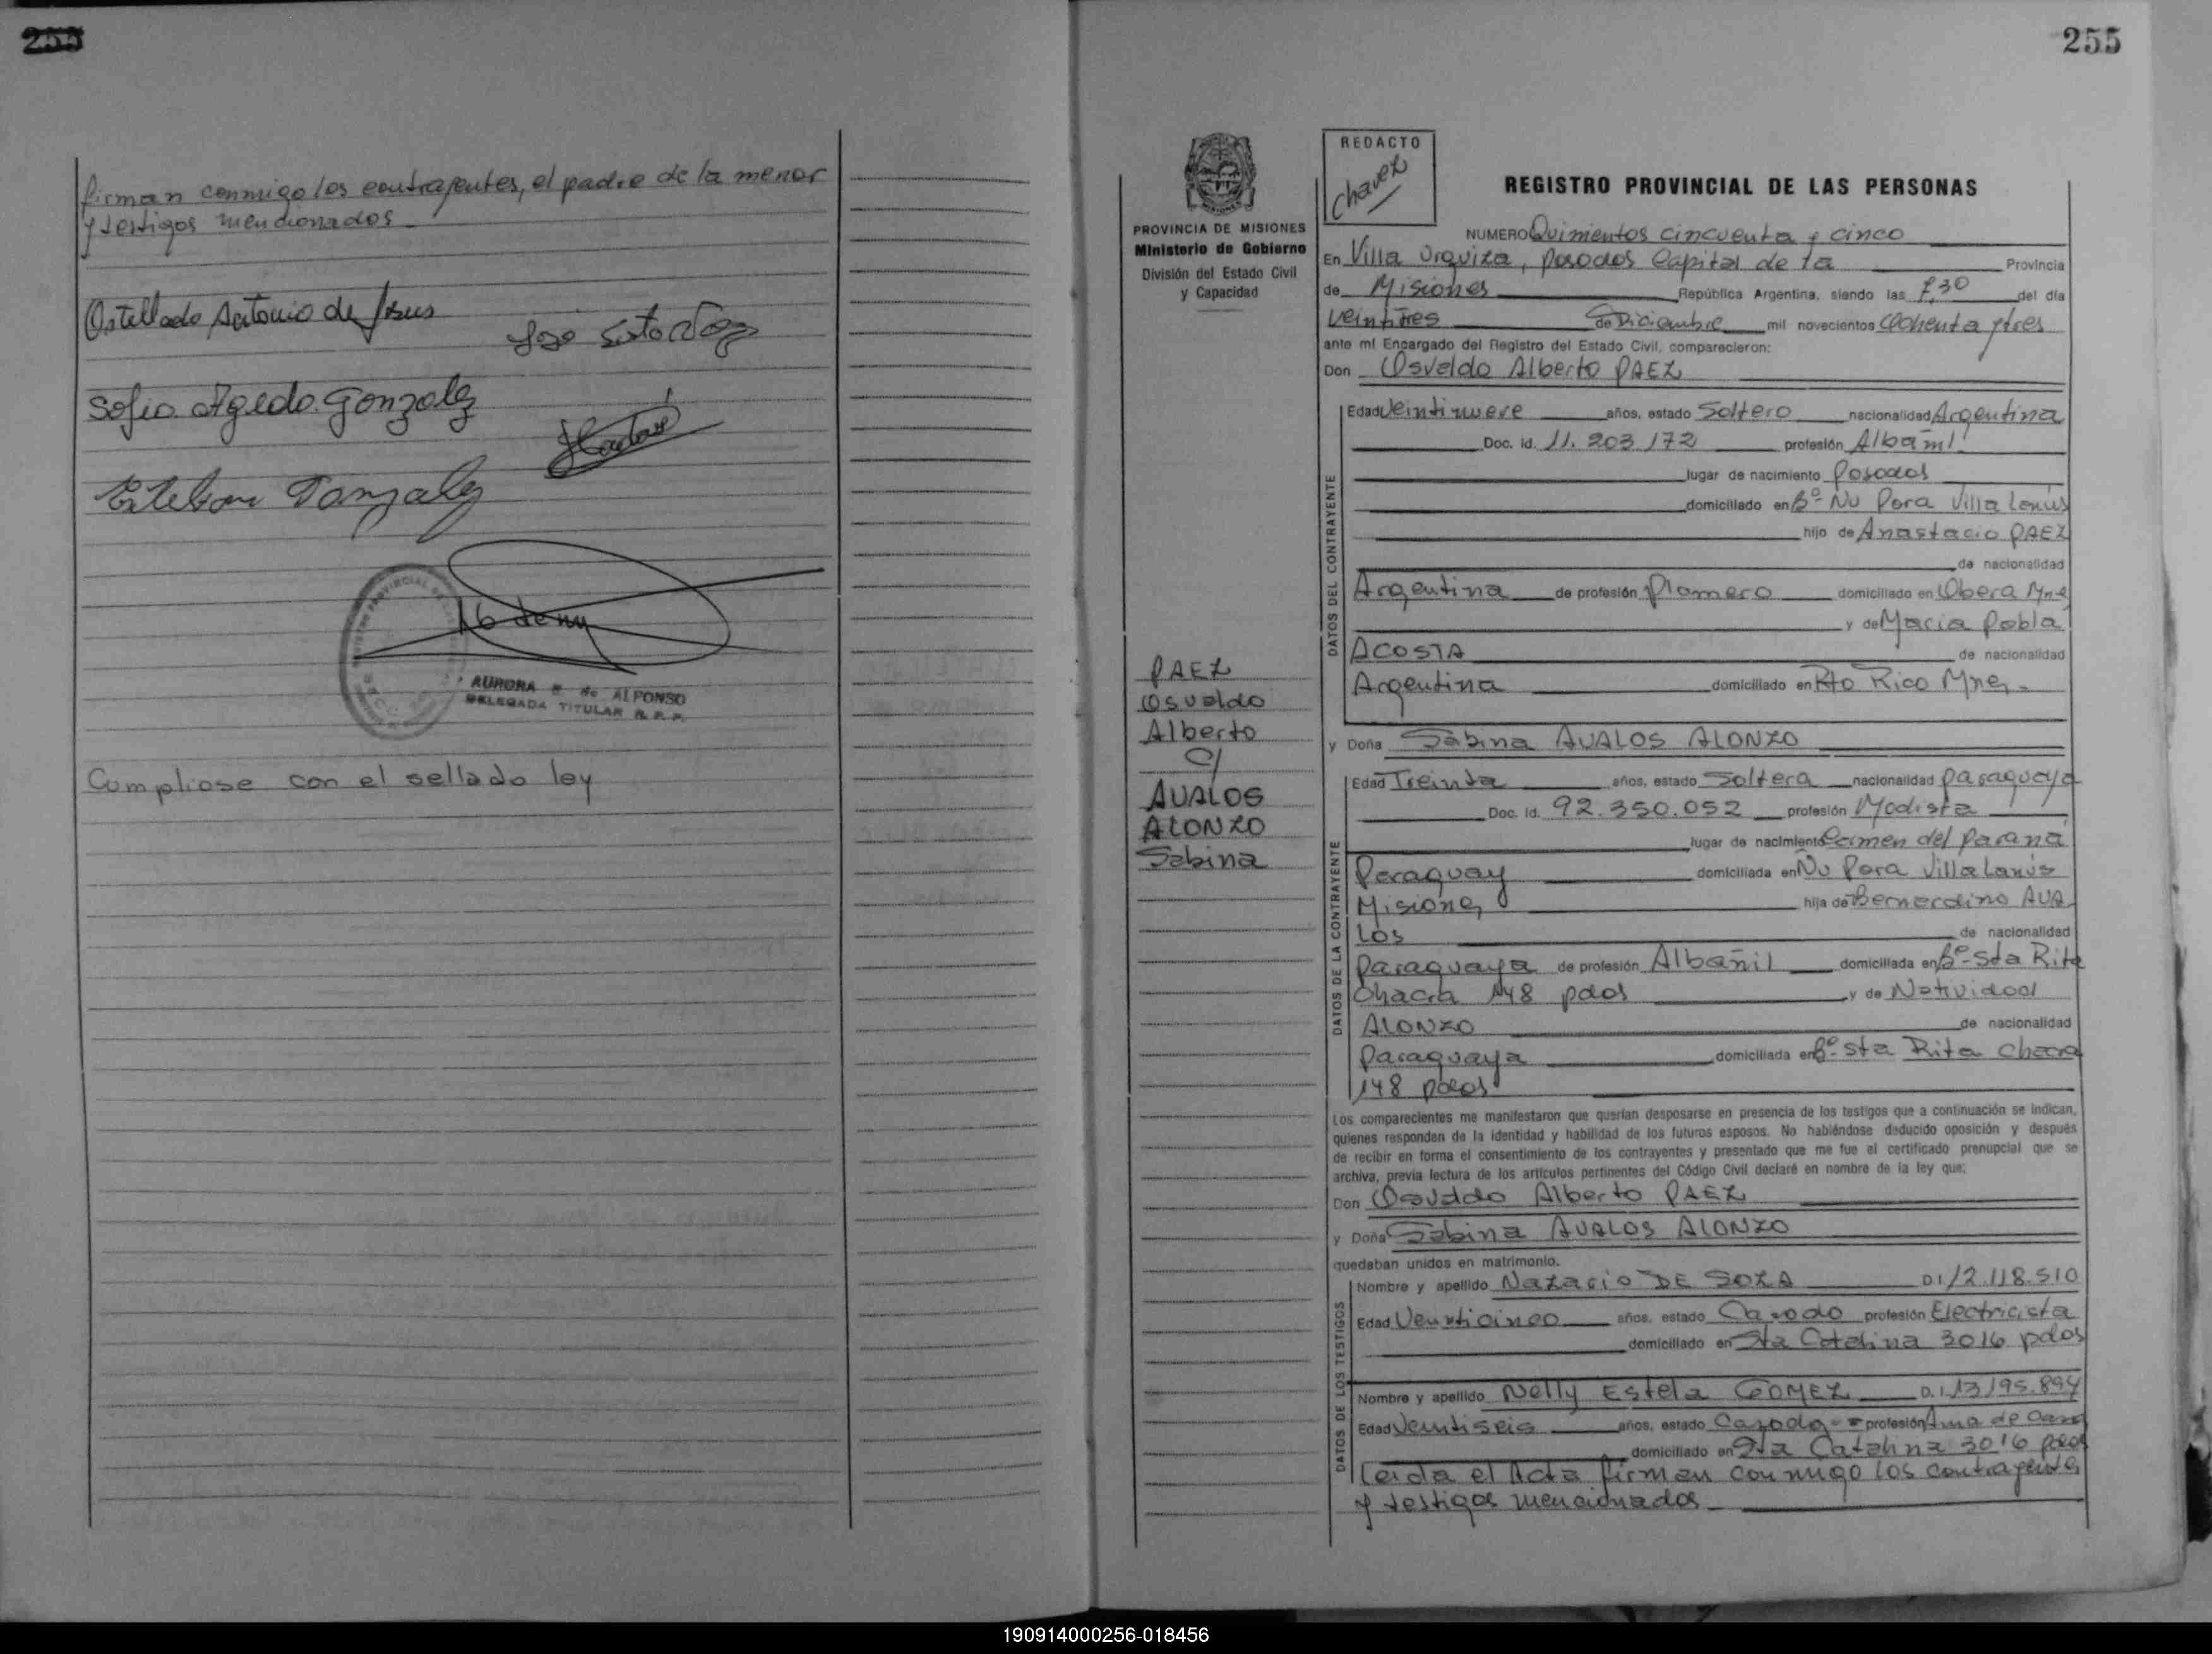 255
firman conmigo los contrayentes, el padre de la menor
y testigos mencionados
Ostellado Antonio de Jesus
Sofia Agedo Gonzalez
Esteban Gonzalez
AURORA E. de ALFONSO
DELEGADA TITULAR R. P. P.
Cumpliose con el sellado ley
255
PROVINCIA DE MISIONES
Ministerio de Gobierno
División del Estado Civil
y Capacidad
PAEZ
Osvaldo
Alberto
C/
AVALOS
ALONZO
Sabina
REDACTO
Chavez
REGISTRO PROVINCIAL DE LAS PERSONAS
NUMERO Quinientos cincuenta y cinco
En Villa Urquiza, Posadas Capital de la Provincia
de Misiones República Argentina, siendo las 7,30 del día
veintitres de Diciembre mil novecientos Ochenta y tres
ante mí Encargado del Registro del Estado Civil, comparecieron:
Don Osvaldo Alberto PAEZ
DATOS DEL CONTRAYENTE
Edad Veintinueve años, estado Soltero nacionalidad Argentina
Doc. Id. 11.203.172 profesión Albañil
lugar de nacimiento Posadas
domiciliado en Bº- Ñu Pora Villa Lanús
hijo de Anastacio PAEZ
de nacionalidad
Argentina de profesión Plomero domiciliado en Obera Mnes
y de Maria Pabla
ACOSTA de nacionalidad
Argentina domiciliado en Pto Rico Mnes.
y Doña Sabina AVALOS ALONZO
DATOS DE LA CONTRAYENTE
Edad Treinta años, estado Soltera nacionalidad paraguaya
Doc. Id. 92.350.052 profesión Modista
lugar de nacimiento Carmen del Paraná
Paraguay domiciliada en Ñu Pora Villa Lanús
Misiones hija de Bernardino AVA
LOS de nacionalidad
Paraguaya de profesión Albañil domiciliada en Bº- Sta Rita
Chacra 148 pdas y de Natividad
ALONZO de nacionalidad
Paraguaya domiciliada en Bº- Sta Rita Chacra
148 pdas
Los comparecientes me manifestaron que querían desposarse en presencia de los testigos que a continuación se indican,
quienes responden de la identidad y habilidad de los futuros esposos. No habiéndose deducido oposición y después
de recibir en forma el consentimiento de los contrayentes y presentado que me fue el certificado prenupcial que se
archiva, previa lectura de los artículos pertinentes del Código Civil declaré en nombre de la ley que:
Don Osvaldo Alberto PAEZ
y Doña Sabina AVALOS ALONZO
quedaban unidos en matrimonio.
DATOS DE LOS TESTIGOS
Nombre y apellido Nazario DE SOZA D.I 12.118.510
Edad Veinticinco años, estado Casado profesión Electricista
domiciliado en Sta Catalina 3016 pdas
Nombre y apellido Nelly Estela GOMEZ D.I. 13.195.894
Edad Veintiseis años, estado Casada profesión Ama de Casa
domiciliado en Sta Catalina 3016 pdas
Leida el Acta firman conmigo los contrayentes
y testigos mencionados
190914000256-018456